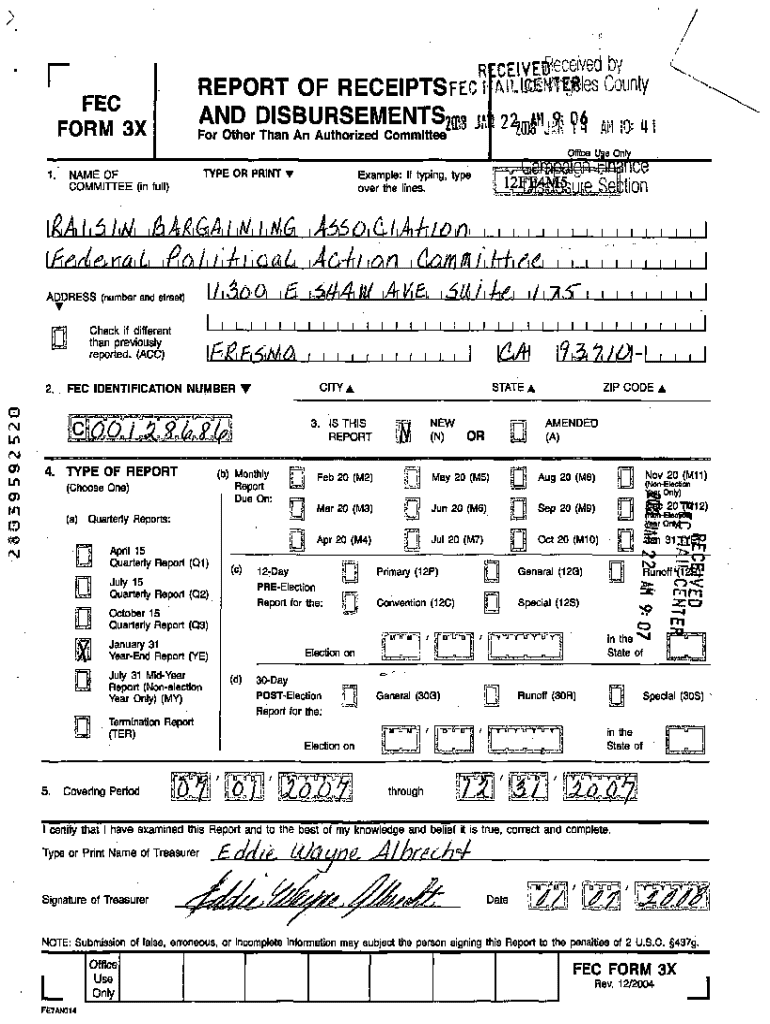 RECEIVED Received by
FEC MAIL CENTER Los Angeles County
2008 JAN 22 AM 9:06
2008 JAN 14 AM 10:41
FEC
FORM 3X
REPORT OF RECEIPTS
AND DISBURSEMENTS
For Other Than An Authorized Committee
Office Use Only
Campaign Finance
Disclosure Section
1. NAME OF
COMMITTEE (in full)
TYPE OR PRINT ▼
Example: If typing, type
over the lines.
12FE4M5
RAISIN BARGAINING ASSOCIATION
Federal Political Action Committee
ADDRESS (number and street)
▼
1300 E SHAW AVE Suite 175
Check if different
than previously
reported. (ACC)
FRESNO CA 93710-
2. FEC IDENTIFICATION NUMBER ▼
CITY ▲ STATE ▲ ZIP CODE ▲
C 00128686
3. IS THIS
REPORT
NEW
(N) OR
AMENDED
(A)
28039592520
4. TYPE OF REPORT
(Choose One)
(a) Quarterly Reports:
April 15
Quarterly Report (Q1)
July 15
Quarterly Report (Q2)
October 15
Quarterly Report (Q3)
X January 31
Year-End Report (YE)
July 31 Mid-Year
Report (Non-election
Year Only) (MY)
Termination Report
(TER)
(b) Monthly
Report
Due On:
Feb 20 (M2) May 20 (M5) Aug 20 (M8) Nov 20 (M11)
(Non-Election
Year Only)
Mar 20 (M3) Jun 20 (M6) Sep 20 (M9) Dec 20 (M12)
(Non-Election
Year Only)
Apr 20 (M4) Jul 20 (M7) Oct 20 (M10) Jan 31 (YE)
(c) 12-Day
PRE-Election
Report for the:
Primary (12P) General (12G) Runoff (12R)
Convention (12C) Special (12S)
Election on
in the
State of
RECEIVED
FEC MAIL CENTER
2008 JAN 22 AM 9:07
(d) 30-Day
POST-Election
Report for the:
General (30G) Runoff (30R) Special (30S)
Election on
in the
State of
5. Covering Period 07 01 2007 through 12 31 2007
I certify that I have examined this Report and to the best of my knowledge and belief it is true, correct and complete.
Type or Print Name of Treasurer Eddie Wayne Albrecht
Signature of Treasurer Eddie Wayne Albrecht Date 01 07 2008
NOTE: Submission of false, erroneous, or incomplete information may subject the person signing this Report to the penalties of 2 U.S.C. §437g.
Office
Use
Only
FEC FORM 3X
Rev. 12/2004
FE7AN014